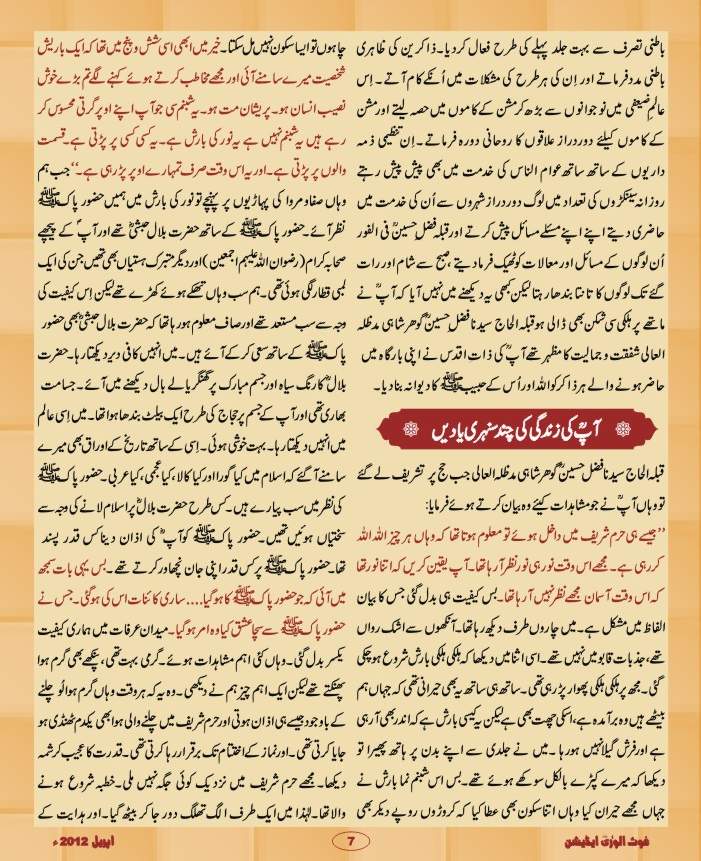 باطنی تصرف سے بہت جلد پہلے کی طرح فعال کر دیا۔ ذاکرین کی ظاہری
باطنی مدد فرماتے اور اِن کی ہر طرح کی مشکلات میں اُنکے کام آتے۔ اِس
عالمِ ضعیفی میں نوجوانوں سے بڑھ کر مشن کے کاموں میں حصہ لیتے اور مشن
کے کاموں کیلئے دور دراز علاقوں کا روحانی دورہ فرماتے۔ اِن تنظیمی ذمہ
داریوں کے ساتھ ساتھ عوام الناس کی خدمت میں بھی پیش پیش رہتے
روزانہ سینکڑوں کی تعداد میں لوگ دور دراز شہروں سے اُن کی خدمت میں
حاضری دیتے اپنے اپنے مسئلے مسائل پیش کرتے اور قبلہ فضل حسینؒ فی الفور
اُن لوگوں کے مسائل اور معاملات کو ٹھیک فرما دیتے، صبح سے شام اور رات
گئے تک لوگوں کا تانتا بندھا رہتا لیکن کبھی یہ دیکھنے میں نہیں آیا کہ آپؒ نے
ماتھے پر ہلکی سی شکن بھی ڈالی ہو قبلہ الحاج سیدنا فضل حسینؒ گوھر شاہی مدظلہ
العالی شفقت و جمالیت کا مظہر تھے آپؒ کی ذات اقدس نے اپنی بارگاہ میں
حاضر ہونے والے ہر ذاکر کو اللہ اور اُس کے حبیبﷺ کا دیوانہ بنا دیا۔
آپؒ کی زندگی کی چند سنہری یادیں
قبلہ الحاج سیدنا فضل حسینؒ گوھر شاہی مدظلہ العالی جب حج پر تشریف لے گئے
تو وہاں آپؒ نے جو مشاہدات کیئے وہ بیان کرتے ہوئے فرمایا:
’’جیسے ہی حرم شریف میں داخل ہوئے تو معلوم ہوتا تھا کہ وہاں ہر چیز اللہ اللہ
کر رہی ہے۔ مجھے اس وقت نور ہی نور نظر آ رہا تھا۔ آپ یقین کریں کہ اتنا نور تھا
کہ اس وقت آسمان مجھے نظر نہیں آ رہا تھا۔ بس کیفیت ہی بدل گئی جس کا بیان
الفاظ میں مشکل ہے۔ میں چاروں طرف دیکھ رہا تھا۔ آنکھوں سے اشک رواں
تھے، جذبات قابو میں نہیں تھے۔ اسی اثنا میں دیکھا کہ ہلکی ہلکی بارش شروع ہو چکی
گئی۔ مجھ پر ہلکی ہلکی پھوار پڑ رہی تھی۔ ساتھ ہی ساتھ یہ بھی حیرانی تھی کہ جہاں ہم
بیٹھے ہیں وہ برآمدہ ہے، اسکی چھت بھی ہے لیکن یہ کیسی بارش ہے کہ اندر بھی آ رہی
ہے اور فرش گیلا نہیں ہو رہا۔ میں نے جلدی سے اپنے بدن پر ہاتھ پھیرا تو
دیکھا کہ میرے کپڑے بالکل سوکھے ہوئے تھے۔ بس اس شبنم نما بارش نے
جہاں مجھے حیران کیا وہاں اتنا سکون بھی عطا کیا کہ کروڑوں روپے دیکر بھی
چاہوں تو ایسا سکون نہیں مل سکتا۔ خیر میں ابھی اسی شش و پنج میں تھا کہ ایک باریش
شخصیت میرے سامنے آئی اور مجھے مخاطب کرتے ہوئے کہنے لگے تم بڑے خوش
نصیب انسان ہو۔ پریشان مت ہو۔ یہ شبنم سی جو آپ اپنے اوپر گرتی محسوس کر
رہے ہیں یہ شبنم نہیں ہے یہ نور کی بارش ہے۔ یہ کسی کسی پر پڑتی ہے۔ قسمت
والوں پر پڑتی ہے۔ اور یہ اس وقت صرف تمہارے اوپر پڑ رہی ہے۔‘‘ جب ہم
وہاں صفا و مروا کی پہاڑیوں پر پہنچے تو نور کی بارش میں ہمیں حضور پاکﷺ
نظر آئے۔ حضور پاکﷺ کے ساتھ حضرت بلال حبشیؓ تھے اور آپؐ کے پیچھے
صحابہ کرام (رضوان اللہ علیہم اجمعین) اور دیگر متبرک ہستیاں بھی تھیں جن کی ایک
لمبی قطار لگی ہوئی تھی۔ ہم سب وہاں تھکے ہوئے کھڑے تھے لیکن اِس کیفیت کی
وجہ سے سب مستعد تھے اور صاف معلوم ہو رہا تھا کہ حضرت بلال حبشیؓ بھی حضور
پاکﷺ کے ساتھ سعی کر کے آئے ہیں۔ میں انہیں کافی دیر دیکھتا رہا۔ حضرت
بلالؓ کا رنگ سیاہ اور جسم مبارک پر گھنگریالے بال دیکھنے میں آئے۔ جسامت
بھاری تھی اور آپ کے جسم پر حجاج کی طرح ایک بیلٹ بندھا ہوا تھا۔ میں اِسی عالم
میں انہیں دیکھتا رہا۔ بہت خوشی ہوئی۔ اِسی کے ساتھ تاریخ کے اوراق بھی میرے
سامنے آ گئے کہ اسلام میں کیا گورا اور کیا کالا، کیا عجمی، کیا عربی۔ حضور پاکﷺ
کی نظر میں سب پیارے ہیں۔ کس طرح حضرت بلالؓ پر اسلام لانے کی وجہ سے
سختیاں ہوئیں تھیں۔ حضور پاکﷺ کو آپؓ کی اذان دینا کس قدر پسند
تھا۔ حضور پاکﷺ پر کس قدر اپنی جان نچھاور کرتے تھے۔ بس یہی بات سمجھ
میں آئی کہ جو حضور پاکﷺ کا ہو گیا.... ساری کائنات اس کی ہو گئی۔ جس نے
حضور پاکﷺ سے سچا عشق کیا وہ امر ہو گیا۔ میدان عرفات میں ہماری کیفیت
یکسر بدل گئی۔ وہاں کئی اہم مشاہدات ہوئے۔ گرمی بہت تھی، پنکھے بھی گرم ہوا
پھینکتے تھے لیکن ایک اہم چیز ہم نے دیکھی۔ وہ یہ کہ ہر وقت وہاں گرم ہوا لُو چلنے
کے باوجود جیسے ہی اذان ہوتی اور حرم شریف میں چلنے والی ہوا بھی یکدم ٹھنڈی ہو
جایا کرتی تھی۔ اور نماز کے اختتام تک برقرار رہا کرتی تھی۔ قدرت کا عجیب کرشمہ
دیکھا۔ مجھے حرم شریف میں نزدیک کوئی جگہ نہیں ملی۔ خطبہ شروع ہونے
والا تھا۔ لہٰذا میں ایک طرف الگ تھلگ دور جا کر بیٹھ گیا۔ اور ہدایت کے
غوث الوریٰ ایڈیشن
7
اپریل 2012ء